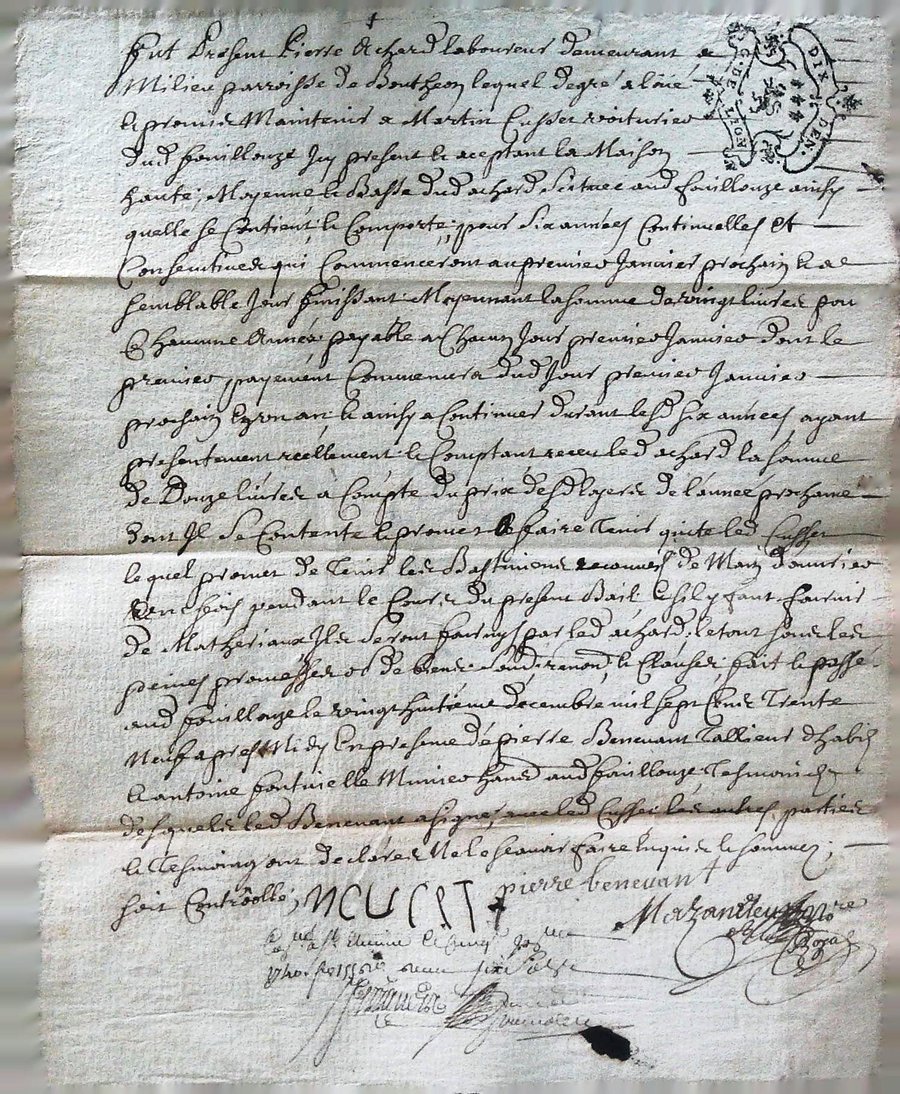 fut Present Pierre Achard laboureur demeurant a
Milieu parroisse de Bontheon lequel de gré a loüé
le promis Maintenir a Martin Cusset voiturier
dud fouillouze Icy present & aceptant la Maison
haute, Moyenne & Basse dud achard Scituee aud fouillouze ainsy
quelle se Contient & Comporte, pour Six années Continuelles et
Consecutives qui Commenceront au premier Janvier prochain &
semblable Jour finissant Moyennant la somme de vingt livres pour
Chacune Année, payable a Chacun Jour premier Janvier dont le
premier payement Commencera dud Jour premier Janvier
prochain en un an & ainsy a Continuer durant lesd six années, ayant
presentement reellement & Comptant receu led achard la somme
de Douze livres a Compte du prix desd loyers de l'année prochaine
dont Il Se Contente & promet faire Tenir quite led Cusset
lequel promet de Tenir les Bastiments de Main d'ouvrier
pendant le Cours du present Bail & sily faut fournir
de Matheriaux Ils Seront fournys par led achard, le tout sous les
peines promesses de biens & Clauses, fait & passé
aud fouillouze le vingt huitième decembre mil sept Cents Trente
Neuf apres Midy En presence de pierre Benevant Tallieur d'habits
& antoine Munier aud fouillouze Tesmoins
desquels led Benevant a signé avec led Cusset les autres parties
& Tesmoing ont declarés Ne le Scavoir faire Enquis & sommez,
soit Controllé,
pierre benevant
DIX DEN.
G. DE LYON